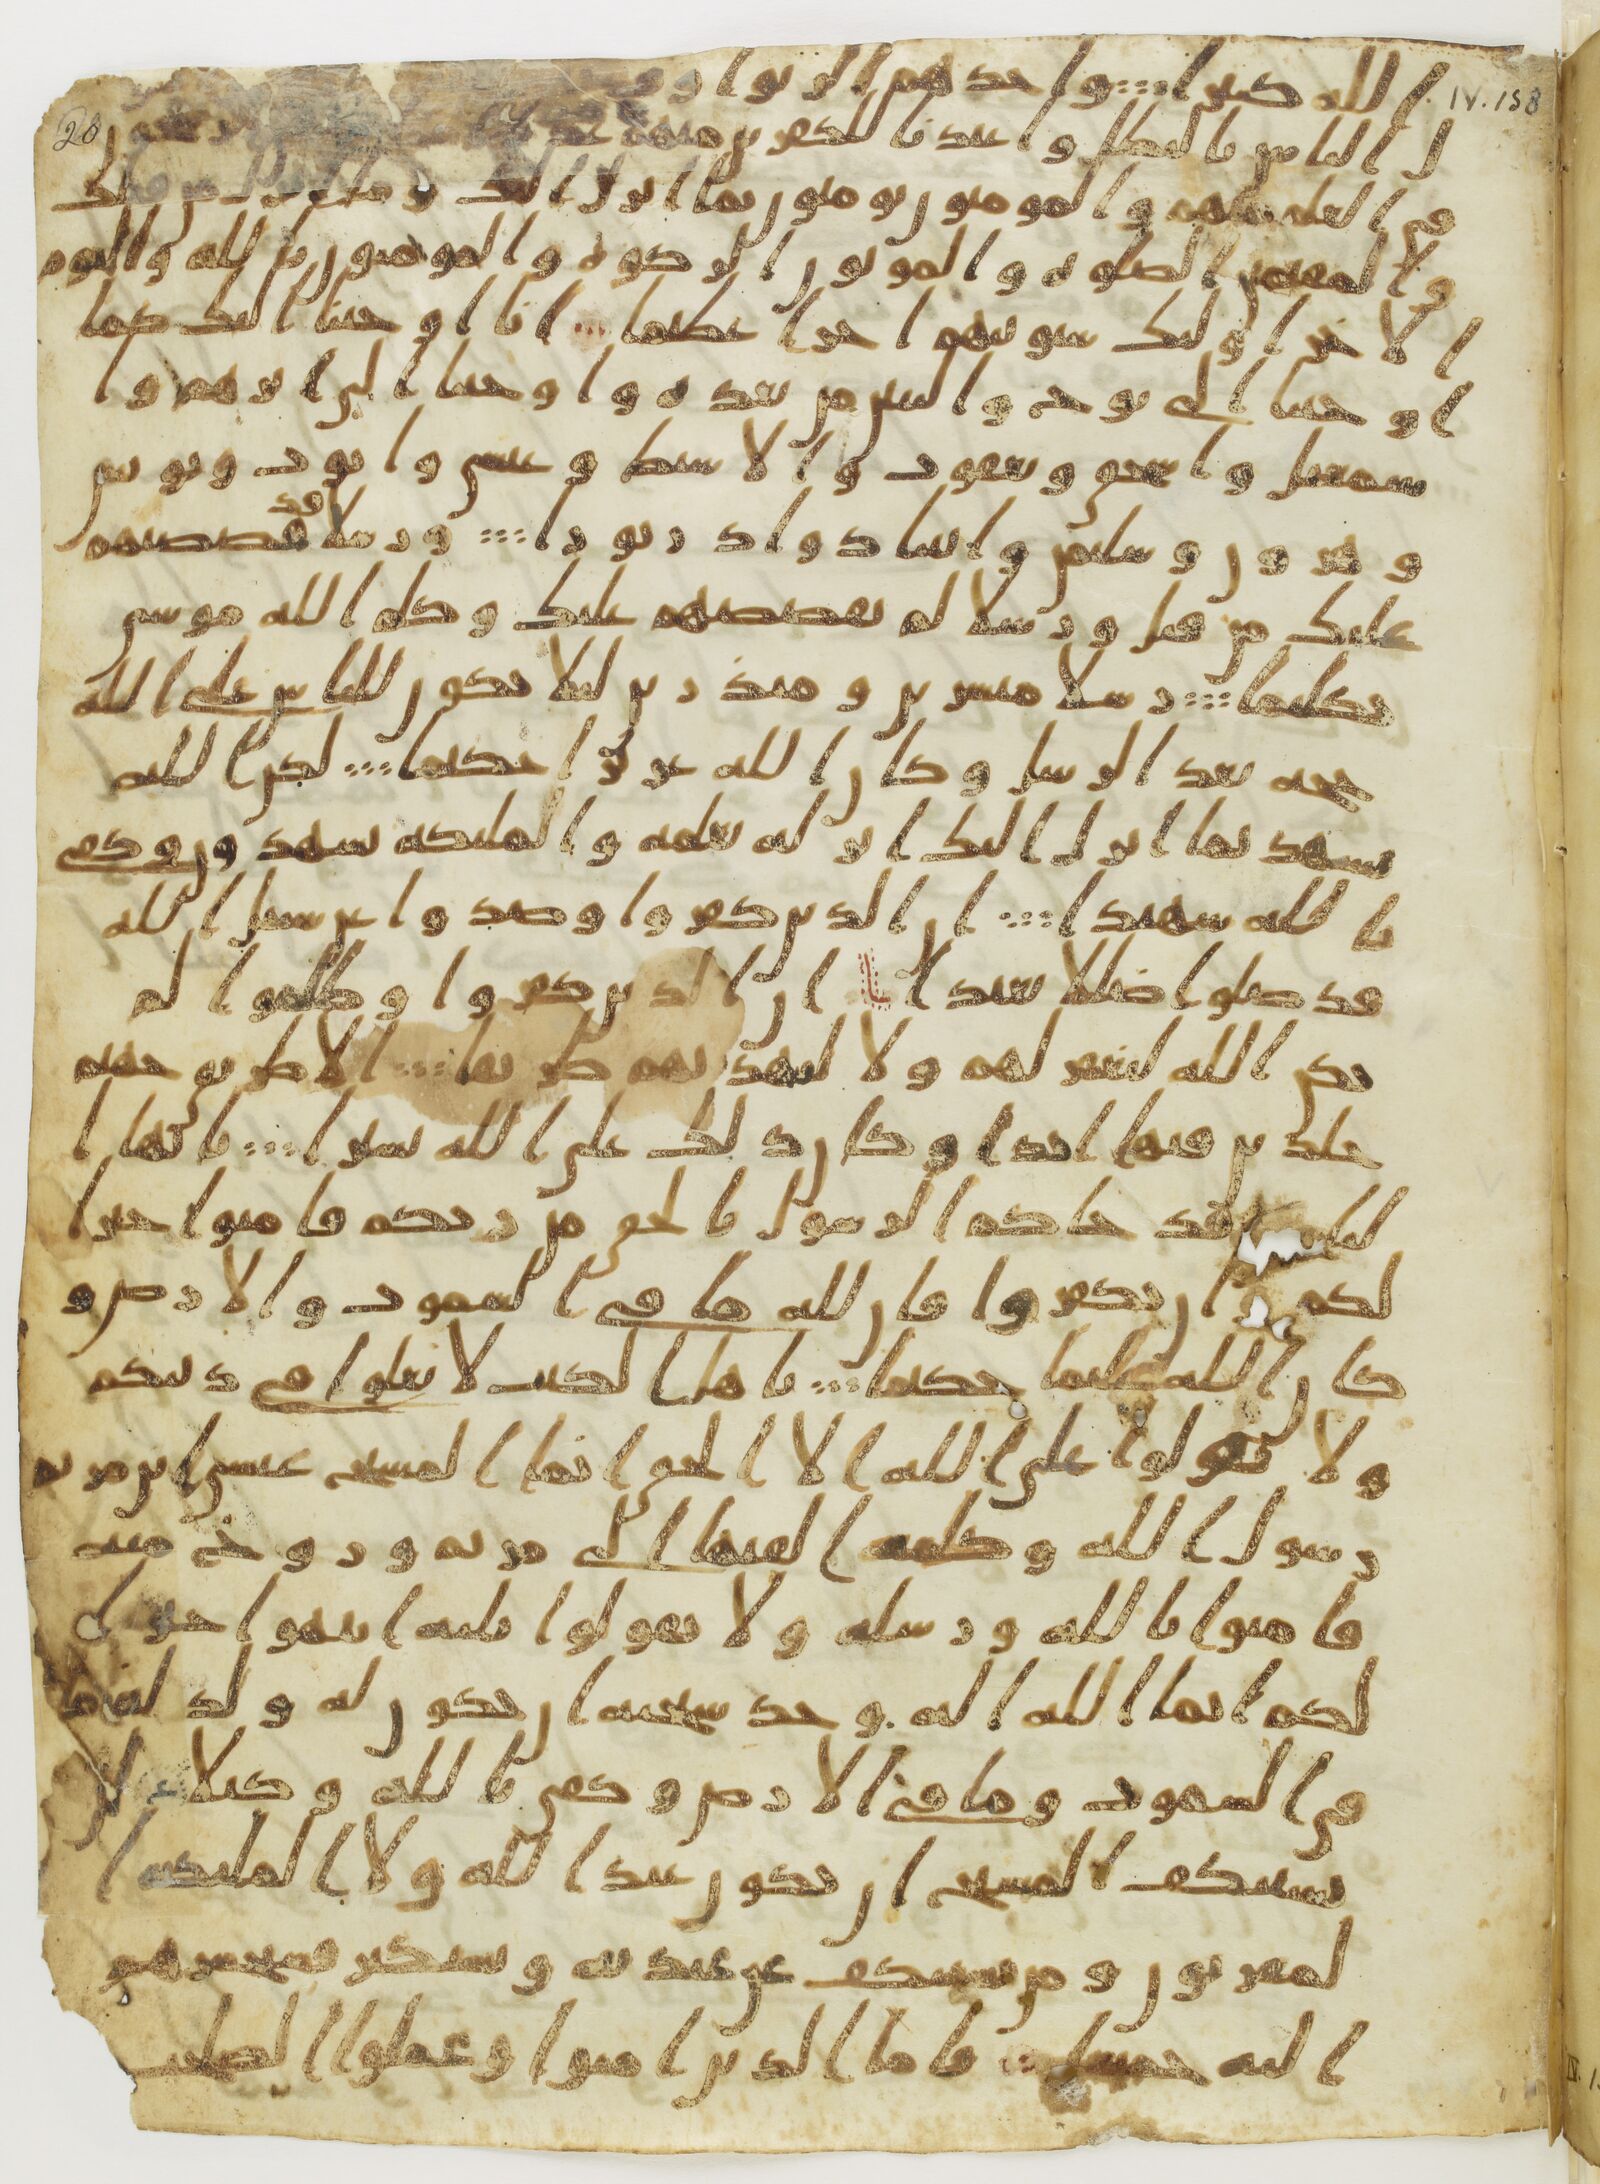 IV. 158
20
الله كثيرا ؞ واخذهم الربوا و
ل الناس بالبطل واعتدنا للكفرين منهم
في العلم منهم والمومنون يومنون بما انزل اليك وما انزل من قبلك
والمقيمين الصلوه والموتون الزكوه والمومنون بالله واليوم
الاخر اوليك سنوتيهم اجرا عظيما انا اوحينا اليك كما
اوحينا الى نوح والنبين من بعده واوحينا الى ابرهيم وا
سمعيل واسحق ويعقوب والاسبط وعيسى وايوب ويونس
وهرون وسليمن واتينا داود زبورا ؞ ورسلا قد قصصنهم
عليك من قبل ورسلا لم نقصصهم عليك وكلم الله موسى
تكليما ؞ رسلا مبشرين ومنذرين ليلا يكون للناس على الله
حجه بعد الرسل وكان الله عزيزا حكيما ؞ لكن الله
يشهد بما انزل اليك انزله بعلمه والمليكه يشهدون وكفى
بالله شهيدا ؞ ان الذين كفروا وصدوا عن سبيل الله
قد ضلوا ضللا بعيدا ان الذين كفروا وظلموا لم
يكن الله ليغفر لهم ولا ليهديهم طريقا ؞ الا طريق جهنم
خلدين فيها ابدا وكان ذلك على الله يسيرا ؞ يايها ا
لناس قد جاكم الرسول بالحق من ربكم فامنوا خيرا
لكم ان تكفروا فان لله ما في السموت والارض و
كان الله عليما حكيما ؞ ياهل الكتب لا تغلوا في دينكم
ولا تقولوا على الله الا الحق انما المسيح عيسى ابن مريم
رسول الله وكلمته القيها الى مريم وروح منه
فامنوا بالله ورسله ولا تقولوا ثلثه انتهوا خيرا
لكم انما الله اله وحد سبحنه ان يكون له ولد له ما
في السموت وما في الارض وكفى بالله وكيلا لن
يستنكف المسيح ان يكون عبدا لله ولا المليكه ا
لمقربون ومن يستنكف عن عبدته ويستكبر فسيحشرهم
اليه جميعا فاما الذين امنوا وعملوا الصلحت